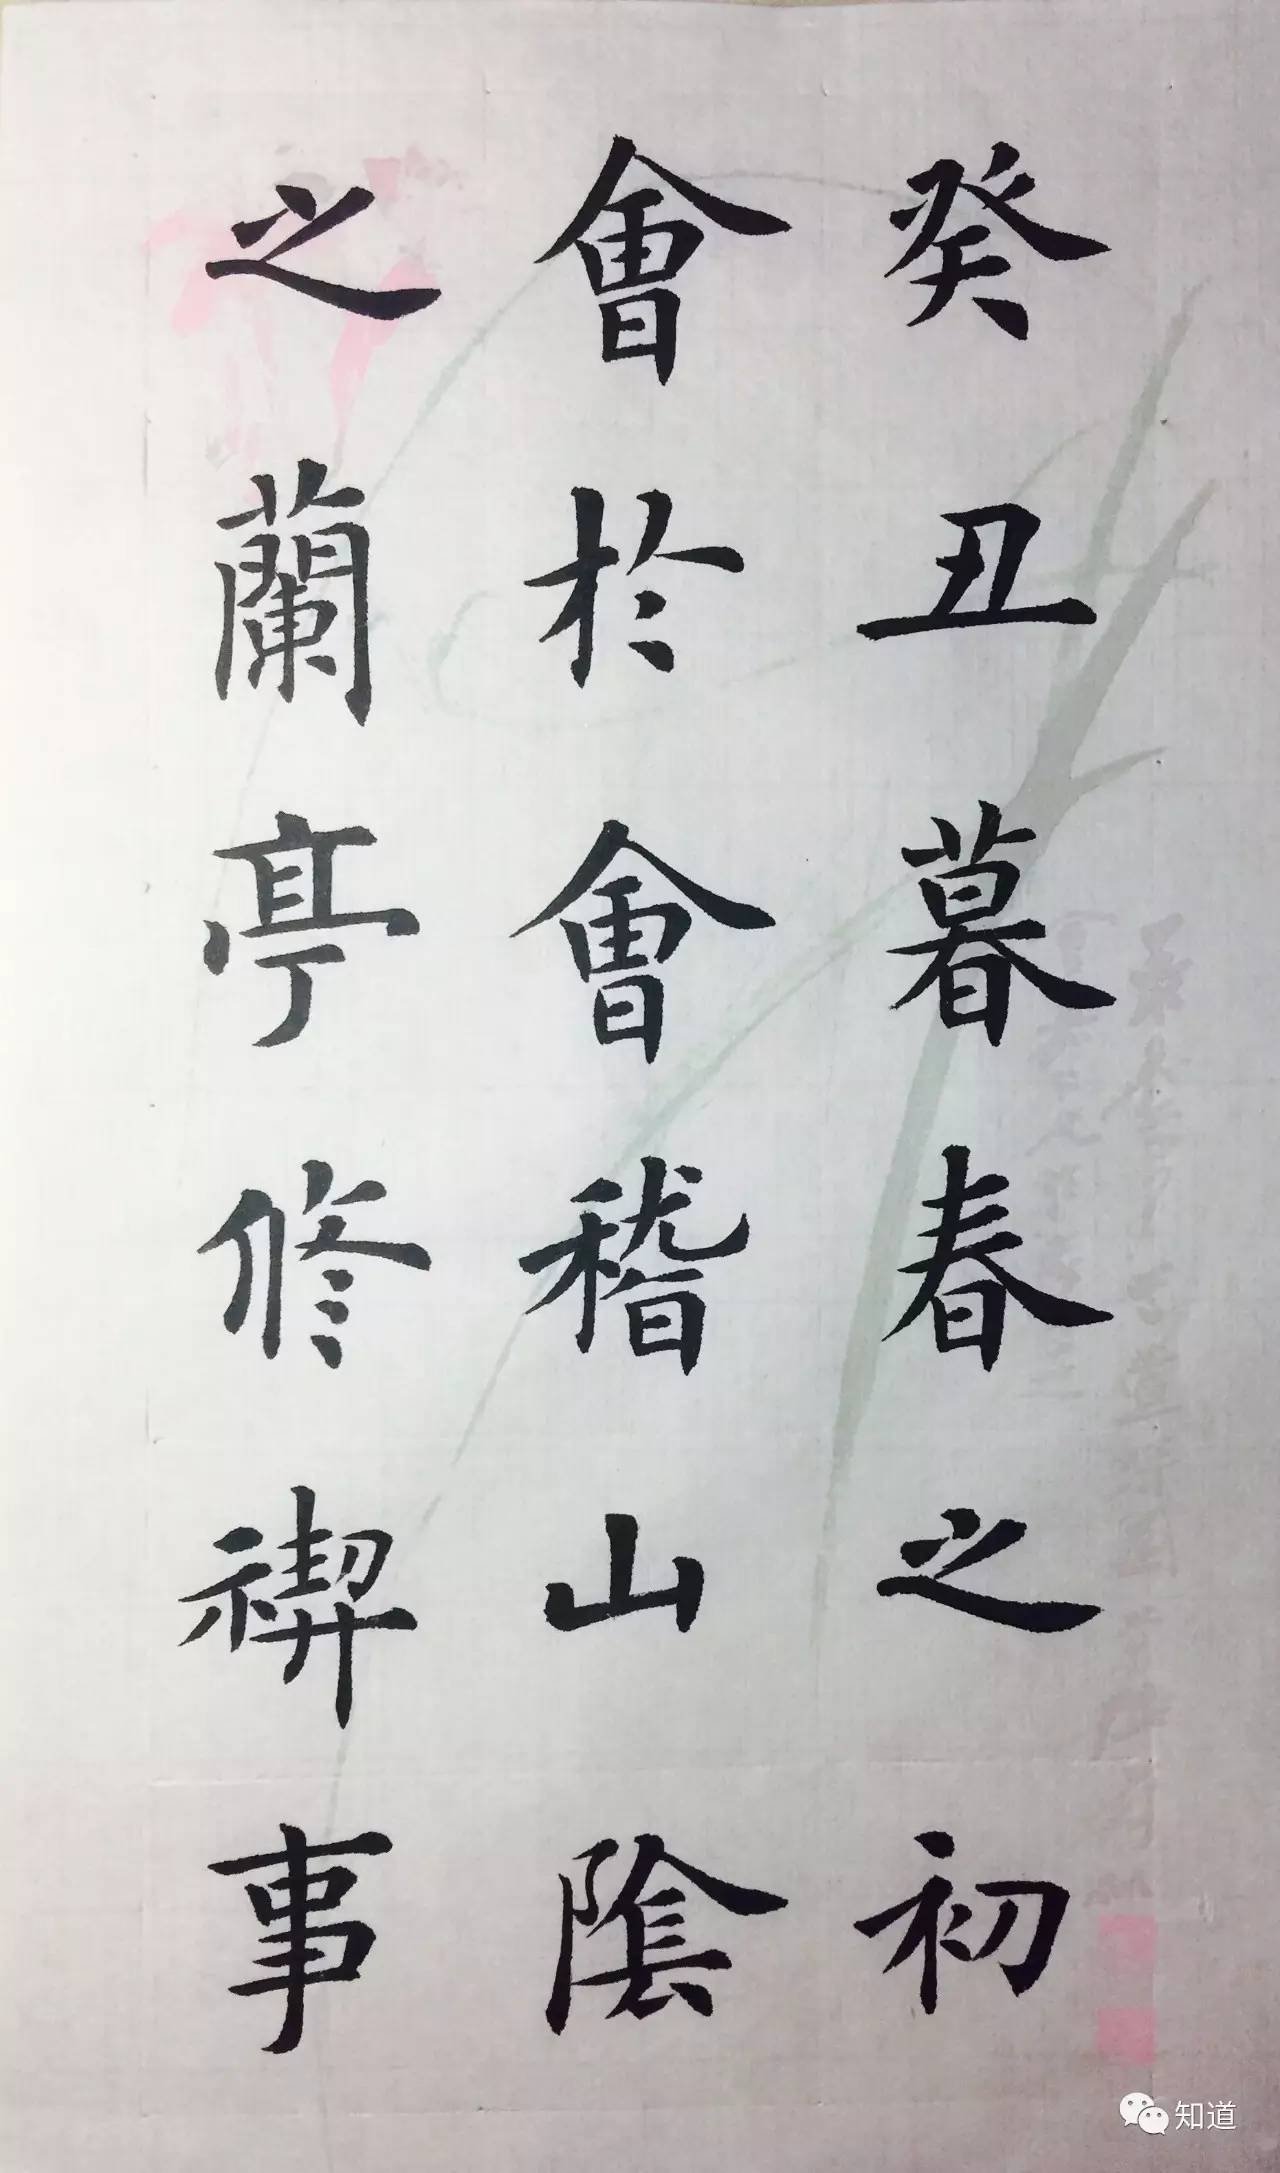 癸丑暮春之初
會於會稽山陰
之蘭亭修禊事
知道